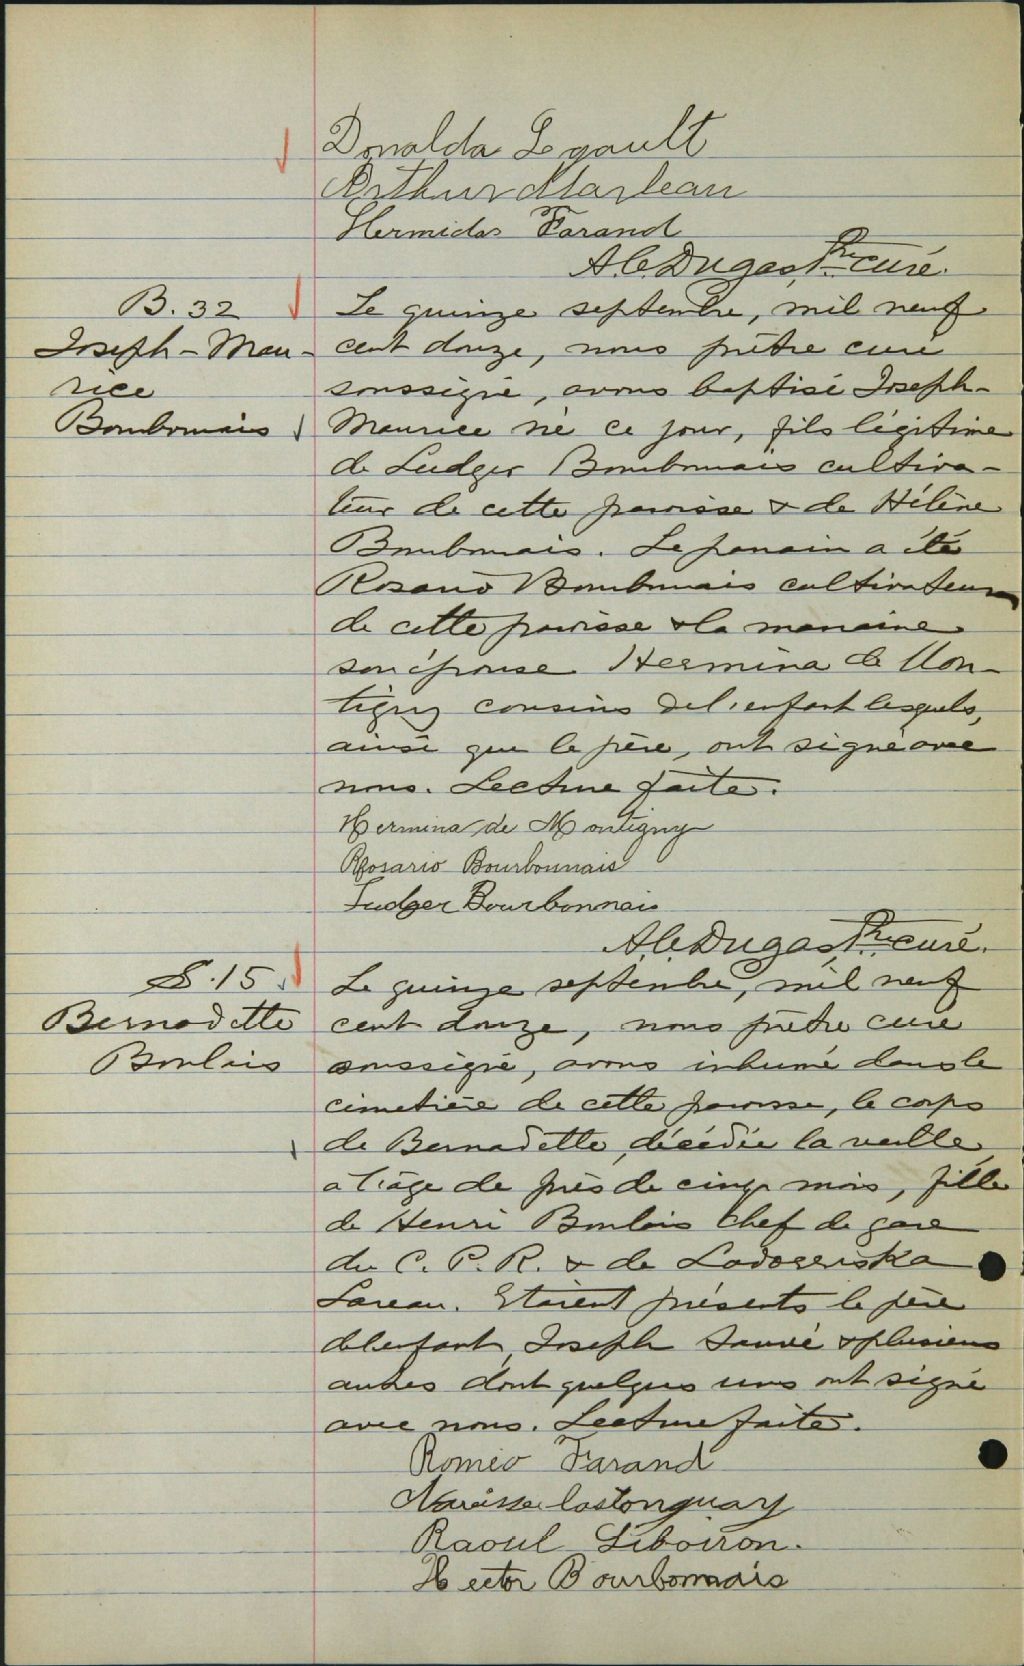 Donalda Legault
Arthur Marleau
Hermidas Farand
A.C. Dugas, Ptre curé.
B. 32
Joseph-Mau-
rice
Bourbonnais
Le quinze septembre, mil neuf
cent douze, nous prêtre curé
soussigné, avons baptisé Joseph-
Maurice né ce jour, fils légitime
de Ludger Bourbonnais cultiva-
teur de cette paroisse & de Hélène
Bourbonnais. Le parrain a été
Rosario Bourbonnais cultivateur
de cette paroisse & la marraine
son épouse Hermina de Mon-
tigny cousins de l'enfant lesquels,
ainsi que le père, ont signé avec
nous. Lecture faite.
Hermina de Montigny
Rosario Bourbonnais
Ludger Bourbonnais
A.C. Dugas, Ptre curé.
S. 15
Bernadette
Boulais
Le quinze septembre, mil neuf
cent douze, nous prêtre curé
soussigné, avons inhumé dans le
cimetière de cette paroisse, le corps
de Bernadette, décédée la veille
a l'âge de près de cinq mois, fille
de Henri Boulais chef de gare
du C. P. R. & de
Lareau. Etaient présents le père
de l'enfant, Joseph Sauvé & plusieurs
autres dont quelques uns ont signé
avec nous. Lecture faite.
Roméo Farand
Narcisse Castonguay
Raoul Liboiron.
Hector Bourbonnais